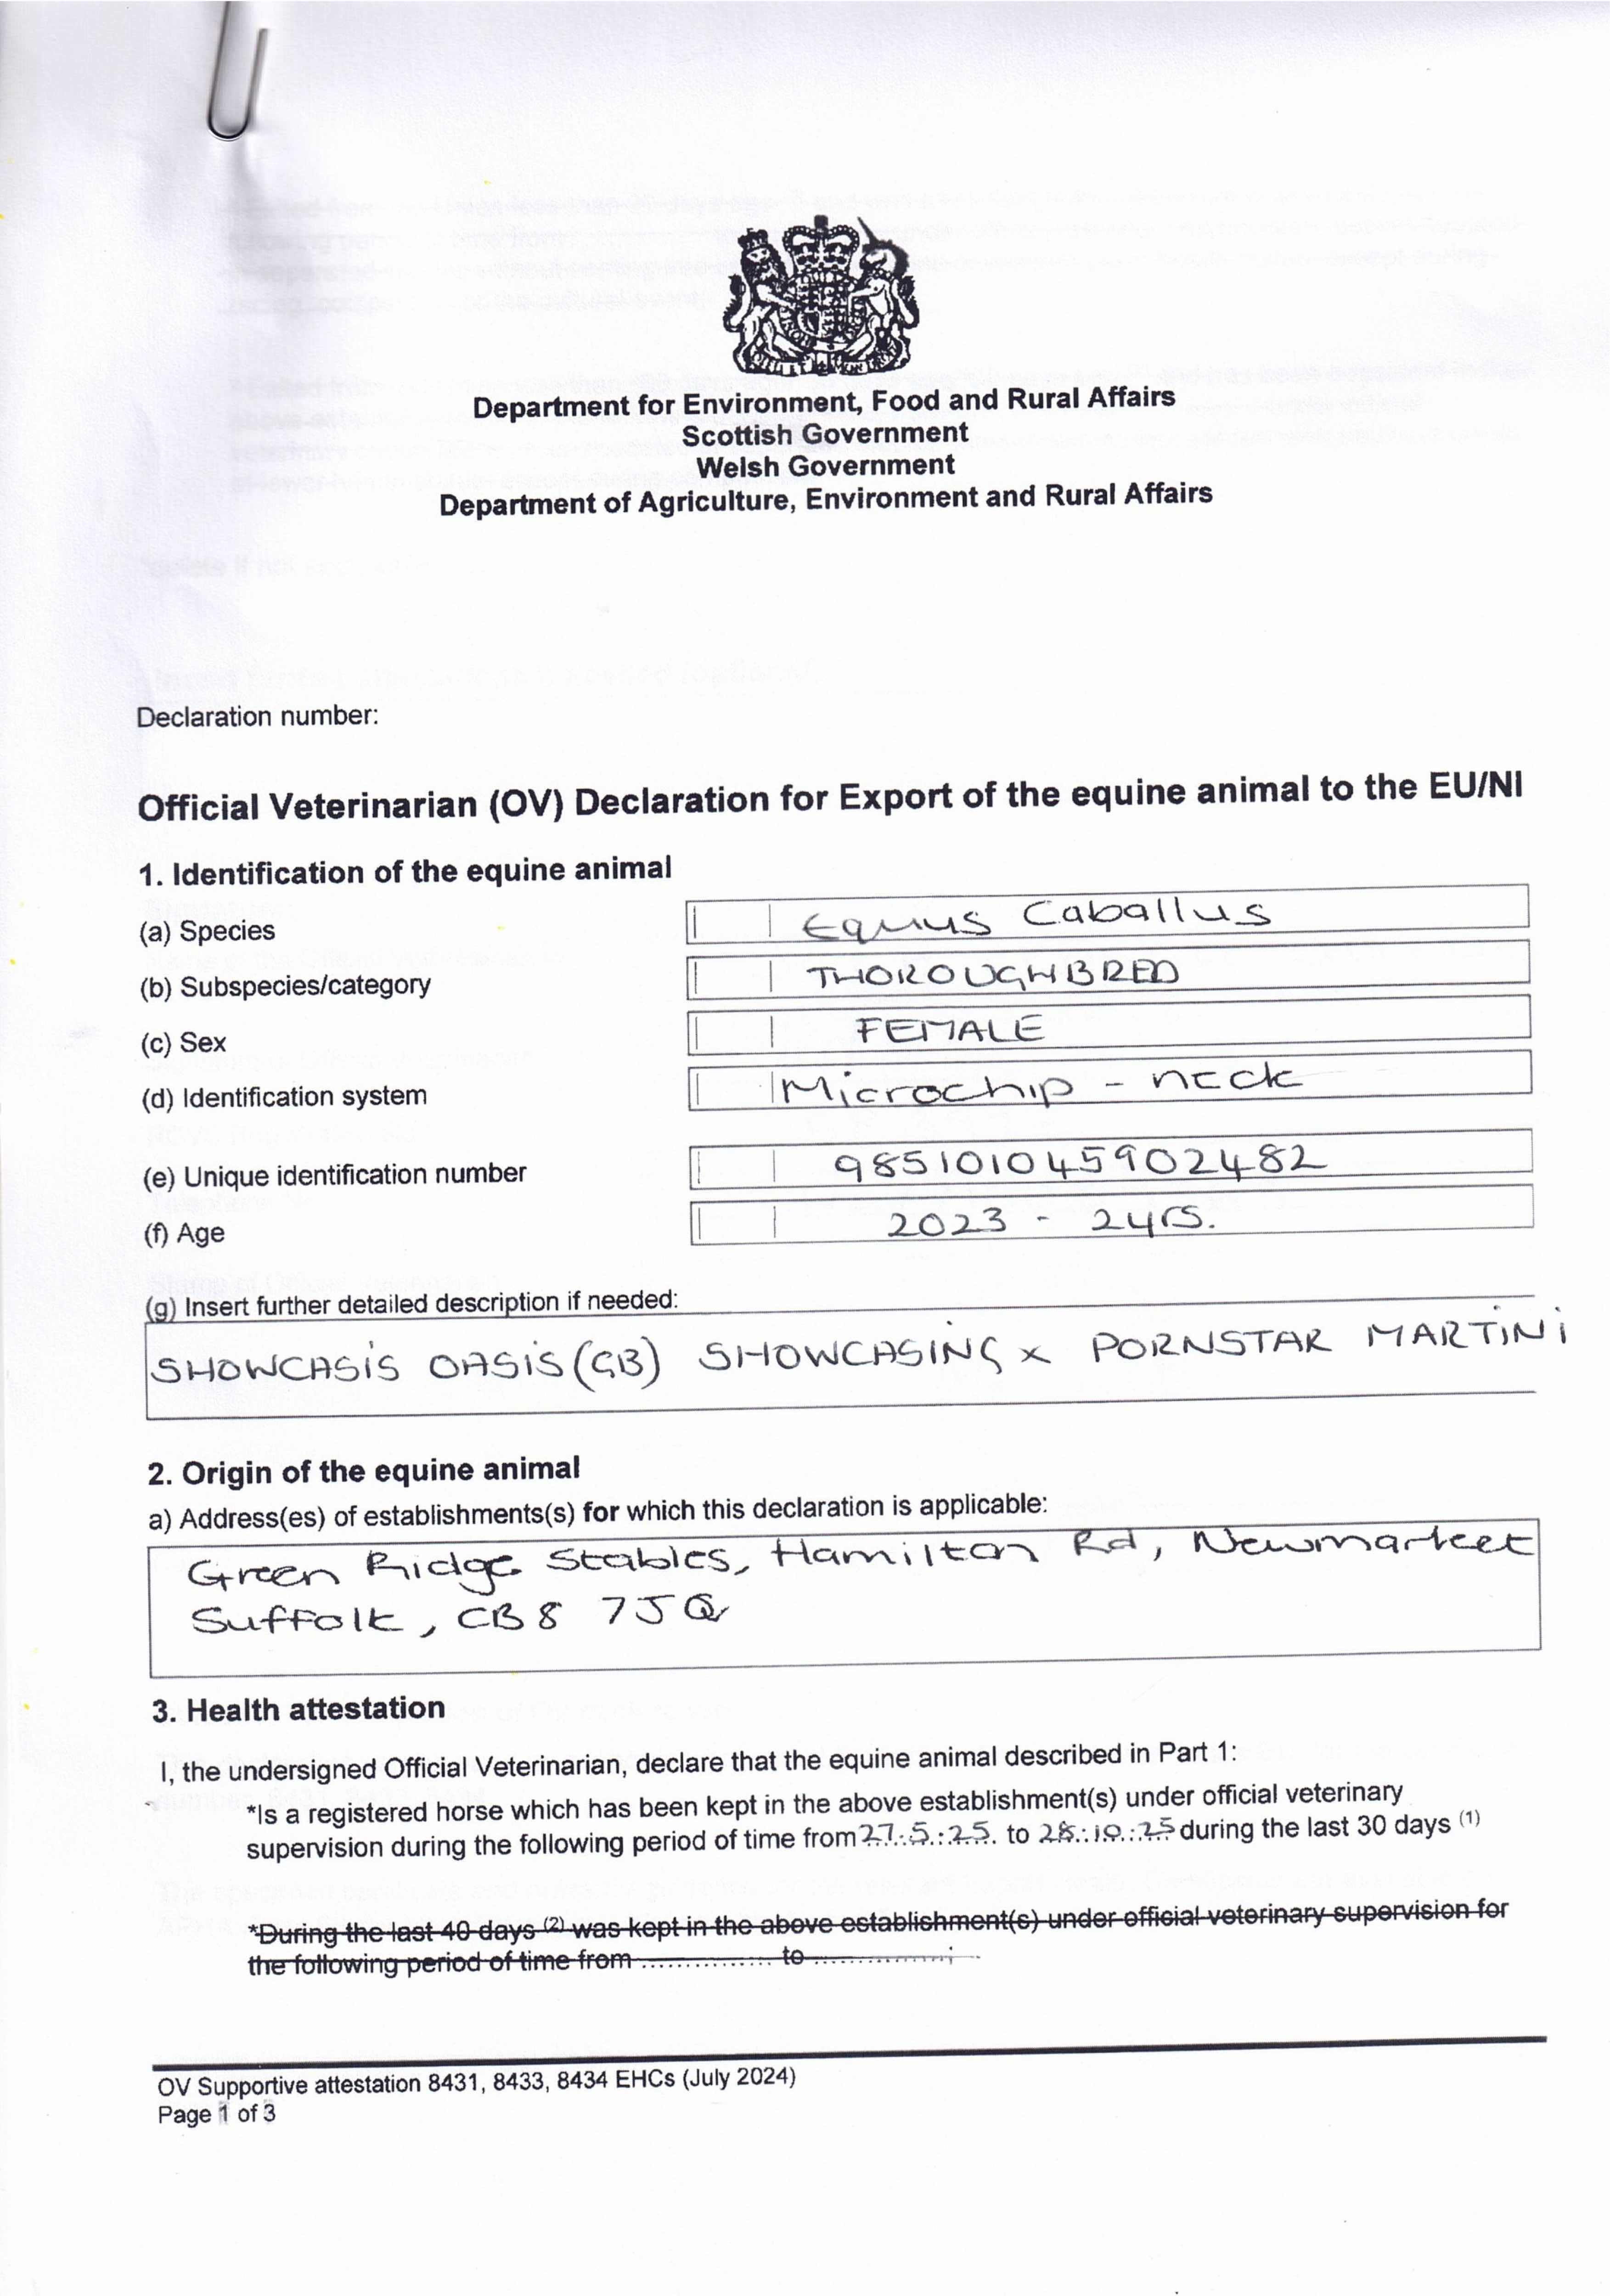 Department for Environment, Food and Rural Affairs
Scottish Government
Welsh Government
Department of Agriculture, Environment and Rural Affairs
Declaration number:
Official Veterinarian (OV) Declaration for Export of the equine animal to the EU/NI
1. Identification of the equine animal
(a) Species Equus Caballus
(b) Subspecies/category THOROUGHBRED
(c) Sex FEMALE
(d) Identification system Microchip - neck
(e) Unique identification number 985101045902482
(f) Age 2023 - 2yrs.
(g) Insert further detailed description if needed:
SHOWCASIS OASIS (GB) SHOWCASING x PORNSTAR MARTINI
2. Origin of the equine animal
a) Address(es) of establishments(s) for which this declaration is applicable:
Green Ridge Stables, Hamilton Rd, Newmarket
Suffolk, CB8 7JQ
3. Health attestation
I, the undersigned Official Veterinarian, declare that the equine animal described in Part 1:
*Is a registered horse which has been kept in the above establishment(s) under official veterinary
supervision during the following period of time from 27.5.25. to 28.10.25 during the last 30 days (1)
*During the last 40 days (2) was kept in the above establishment(s) under official veterinary supervision for
the following period of time from ................ to ................;
OV Supportive attestation 8431, 8433, 8434 EHCs (July 2024)
Page 1 of 3